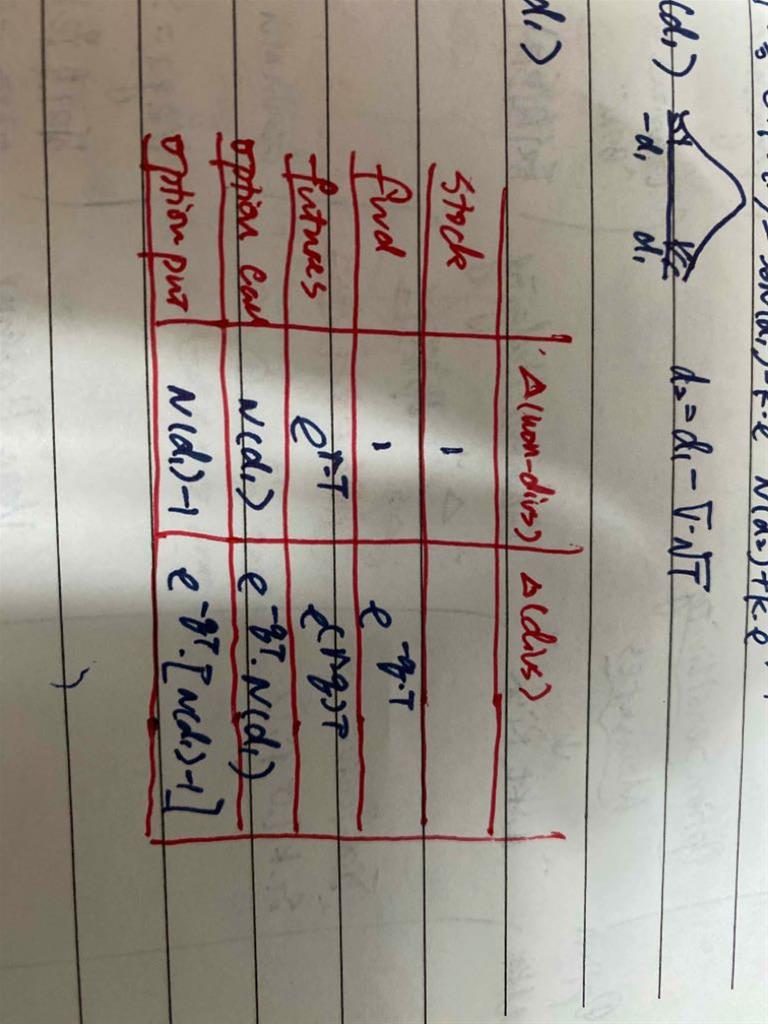 N(d₂) + k·e
(d₁)
-d₁ d₁
d₂ = d₁ - σ·√T
d₁)
Δ(non-divs) Δ(divs)
Stock 1
fwd 1 e^-q·T
futures e^r·T e^(r-q)T
option call N(d₁) e^-qT·N(d₁)
option put N(d₁)-1 e^-qT·[N(d₁)-1]